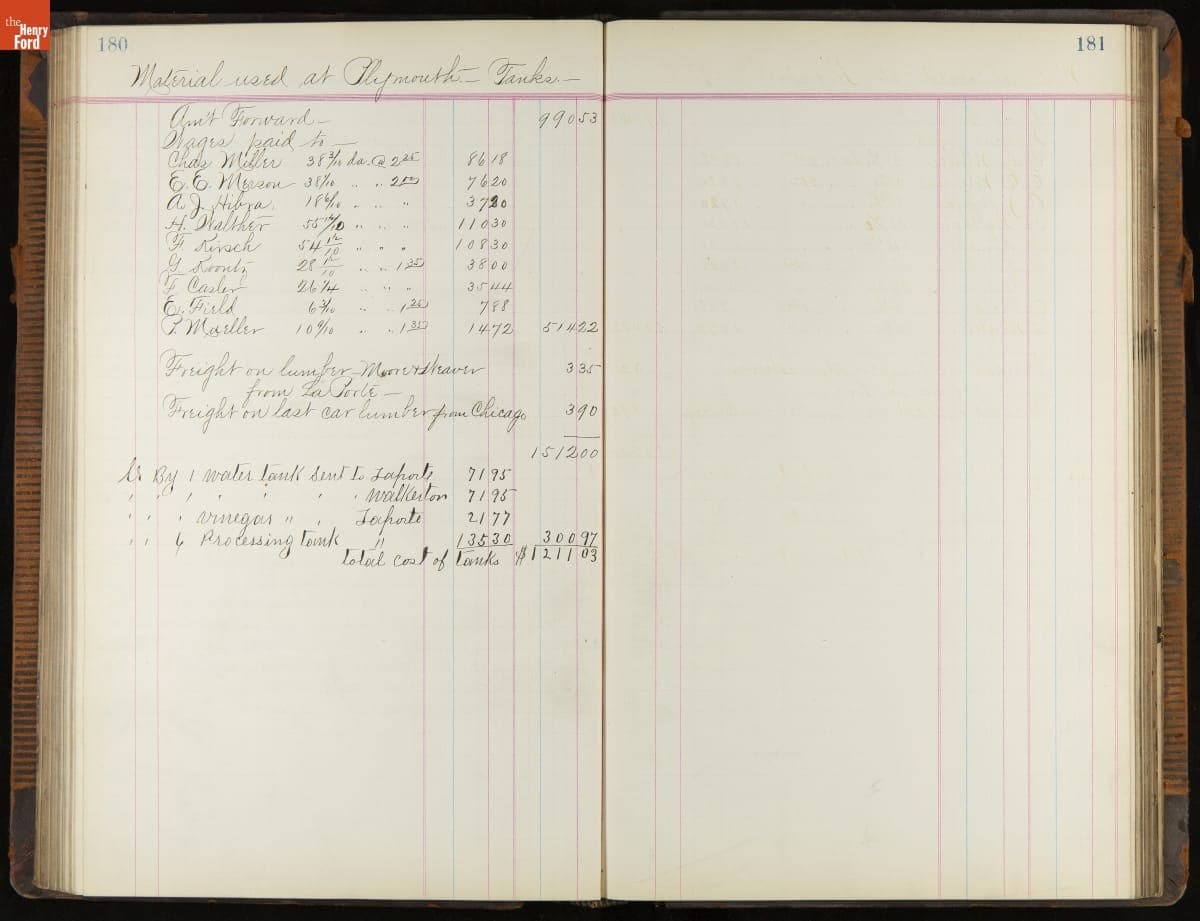 the Henry Ford
180
181
Material used at Plymouth — Tanks —
Am't Forward — 990 53
Wages paid to —
Chas Miller 38 3/10 da. @ 2 25 86 18
E. E. 38 1/10 " " 2 00 76 20
A. J. 18 6/10 " " " 37 20
H. Walther 55 " " " 110 30
F. Kirsch 54 " " " 108 30
G. Koontz 28 " " 1 35 38 00
F. Casler 26 1/4 " " " 35 44
E. Field 6 3/10 " " 1 25 7 88
P. Mueller 10 9/10 " " 1 35 14 72 514 22
Freight on lumber — Moore & Weaver 3 35
from La Porte —
Freight on last car lumber from Chicago 3 90
1512 00
Cr By 1 water tank sent to Laporte 71 95
" " " " " " " Walkerton 71 95
" " " vinegar " " Laporte 21 77
" " 6 Processing tank " 135 30 300 97
total cost of tanks $1211 03